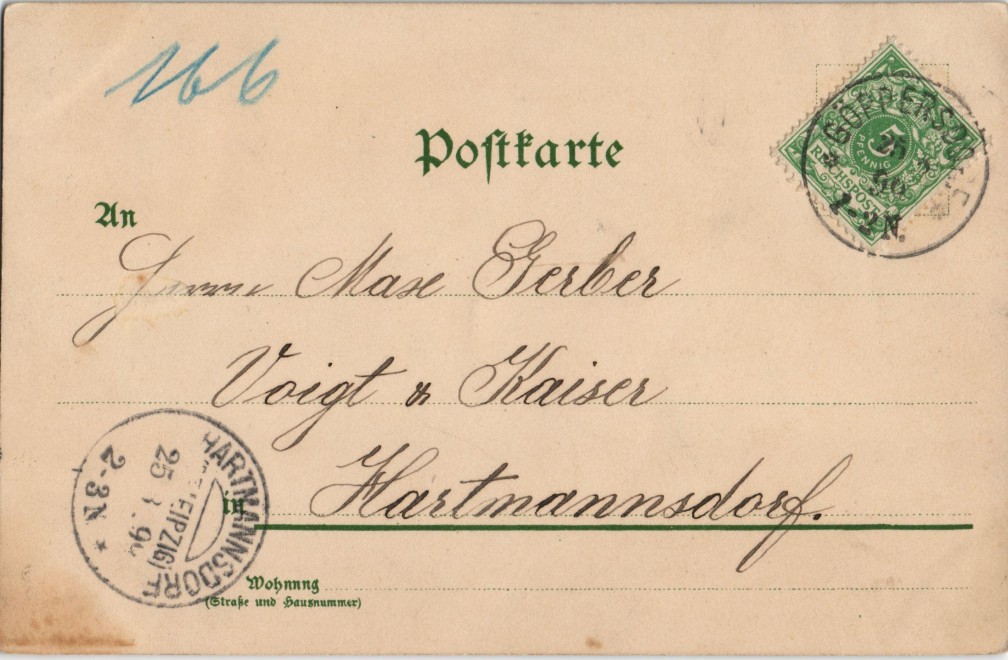 166
Postkarte
5
PFENNIG
REICHSPOST
25
96
1-2N.
An
Herrn Max Gerber
Voigt & Kaiser
in Hartmannsdorf.
HARTMANNSDORF
(BZ. LEIPZIG)
25
2-3N
Wohnung
(Straße und Hausnummer)